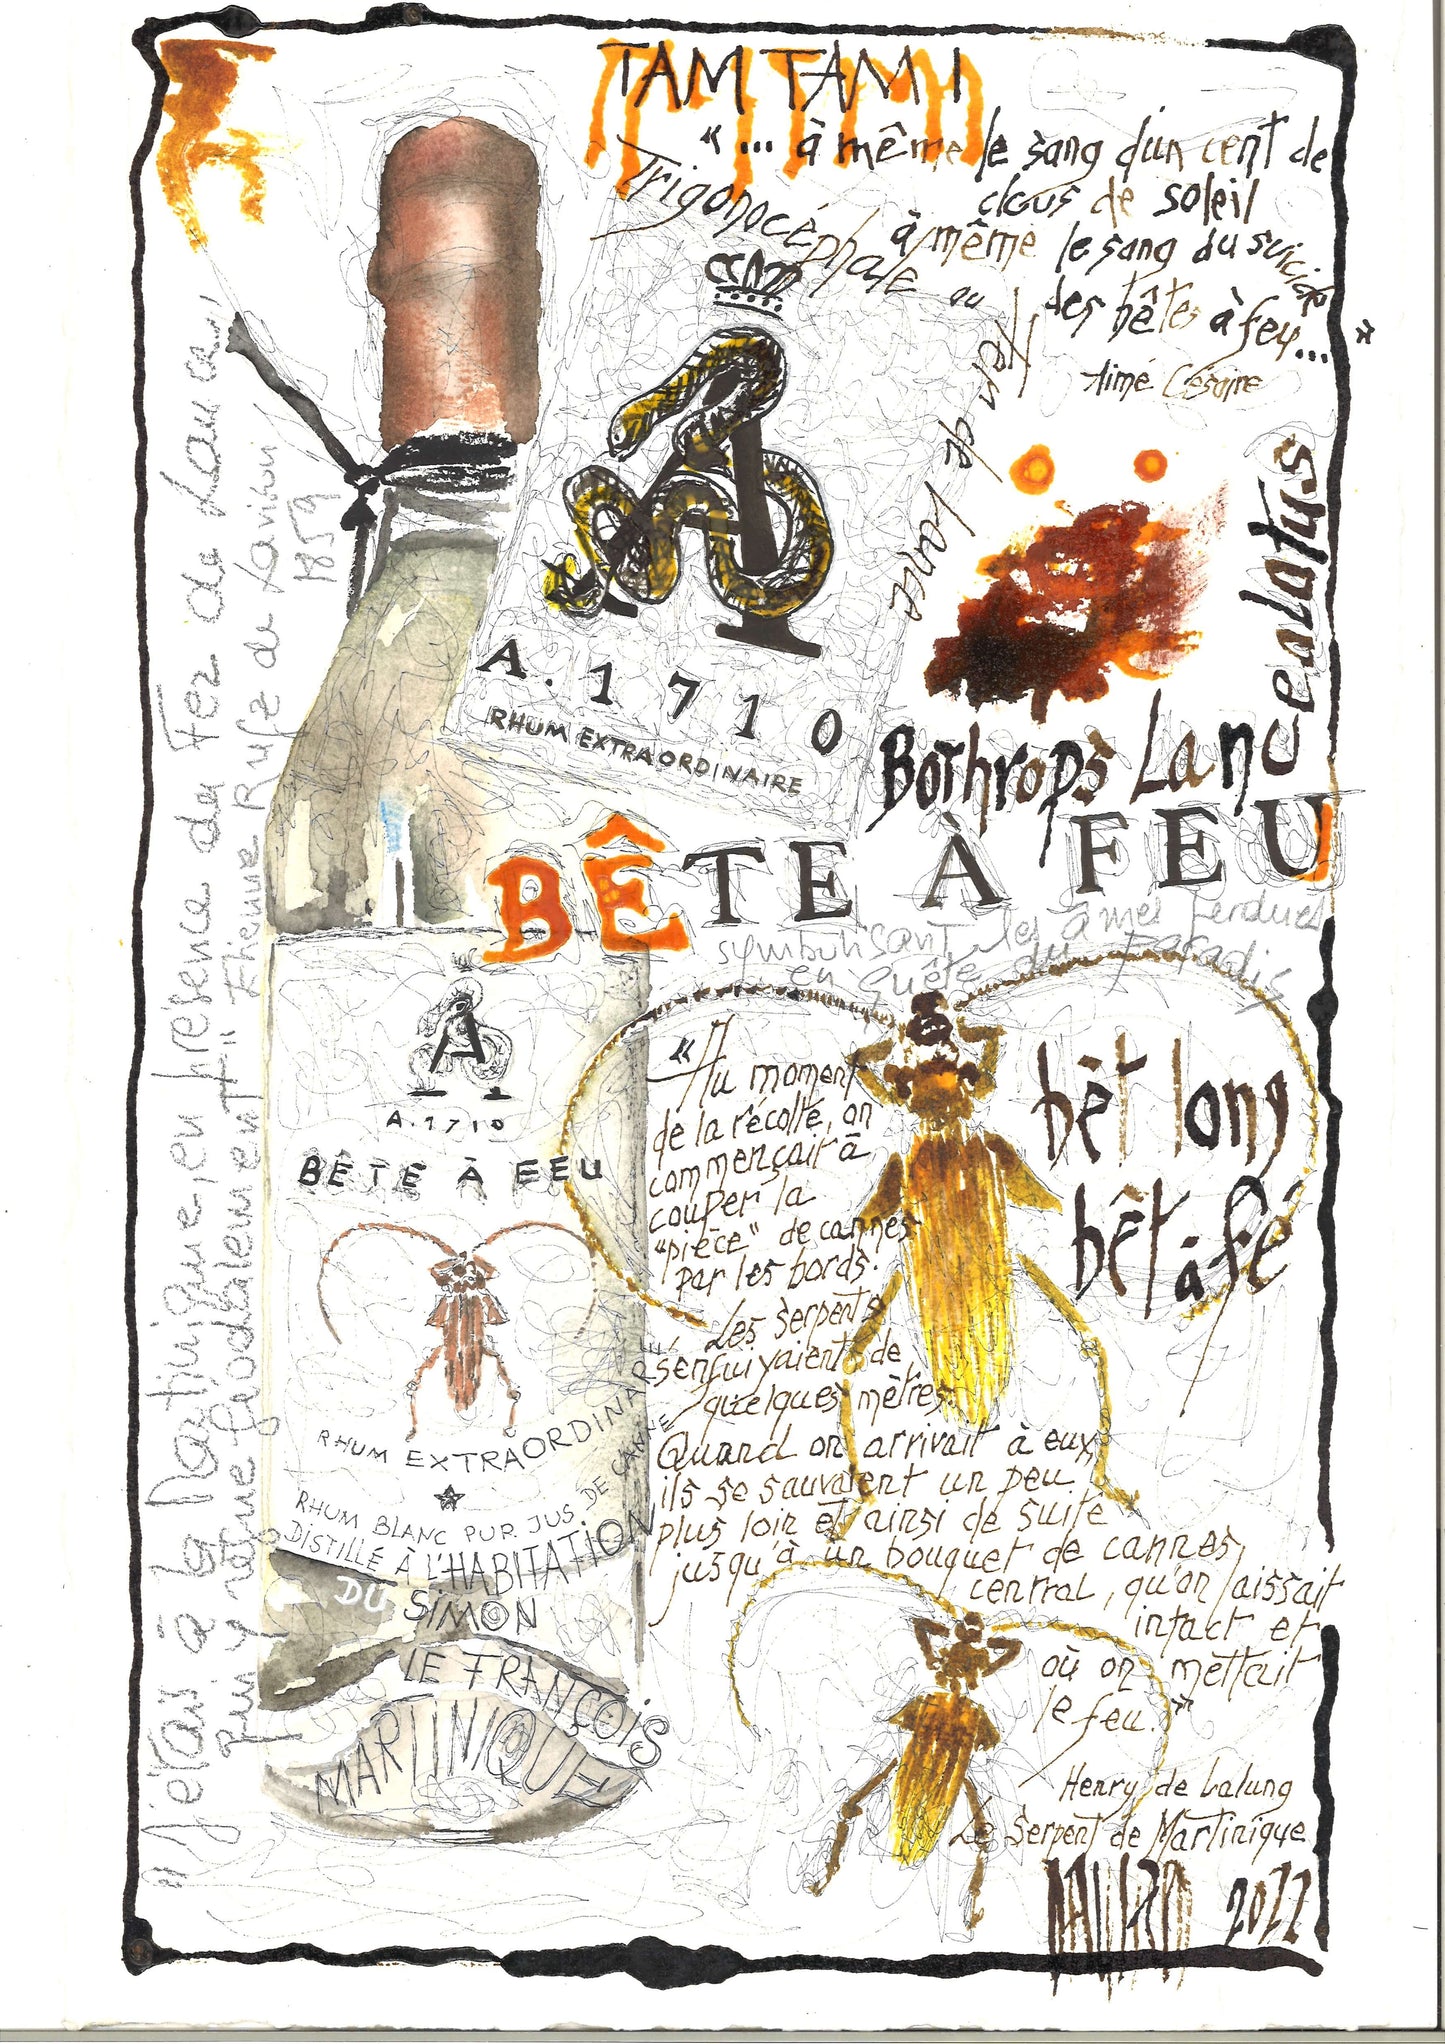 TAM TAM I
"... à même le sang d'un cent de
clous de soleil
à même le sang du suicide
des bêtes à feu... "
Aimé Césaire
Trigonocéphale ou Fer de Lance
A.1710
RHUM EXTRAORDINAIRE
Bothrops Lancealatus
BÊTE À FEU
symbolisant les âmes perdues
en quête du paradis
A.1710
BÊTE À FEU
RHUM EXTRAORDINAIRE
RHUM BLANC PUR JUS DE CANNE
DISTILLÉ À L'HABITATION
DU SIMON
LE FRANÇOIS
MARTINIQUE
"Au moment
de la récolte, on
commençait à
couper la
"pièce" de cannes
par les bords.
Les serpents
s'enfuiyaient de
quelques mètres.
Quand on arrivait à eux,
ils se sauvaient un peu
plus loin et ainsi de suite
jusqu'à un bouquet de cannes
central, qu'on laissait
intact et
où on mettait
le feu."
Henry de Lalung
Le Serpent de Martinique
bèt long
bèt a fé
"J'étais à la Martinique, en présence du Fer de Lance,
qui y règne féodalement" Etienne Rufz de Lavison
1859
2022